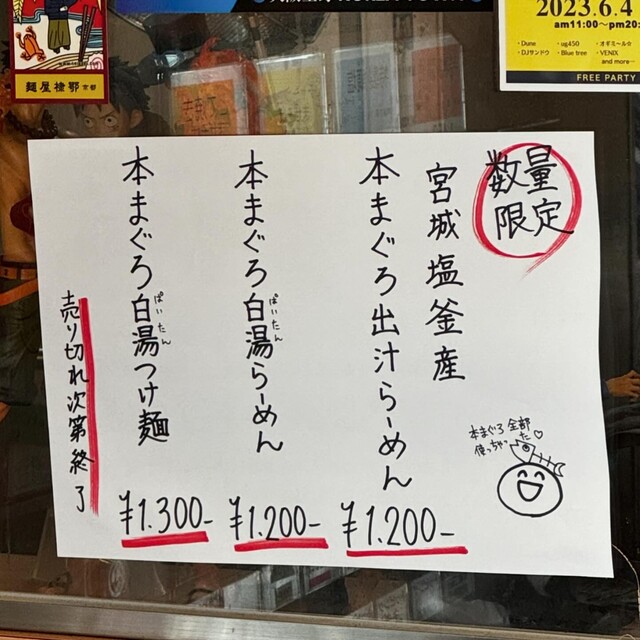 数量
限定
宮城塩釜産
本まぐろ出汁らーめん
¥1.200-
本まぐろ白湯らーめん
ぱいたん
¥1.200-
本まぐろ白湯つけ麺
ぱいたん
¥1.300-
売り切れ次第終了
本まぐろ全部
使っちゃった♡
麺屋 京都
2023.6.4
am11:00～pm20:
・Dune
・DJサンドウ
・ug450
・Blue tree
・オギミール☆
・VENIX
and more…
FREE PARTY